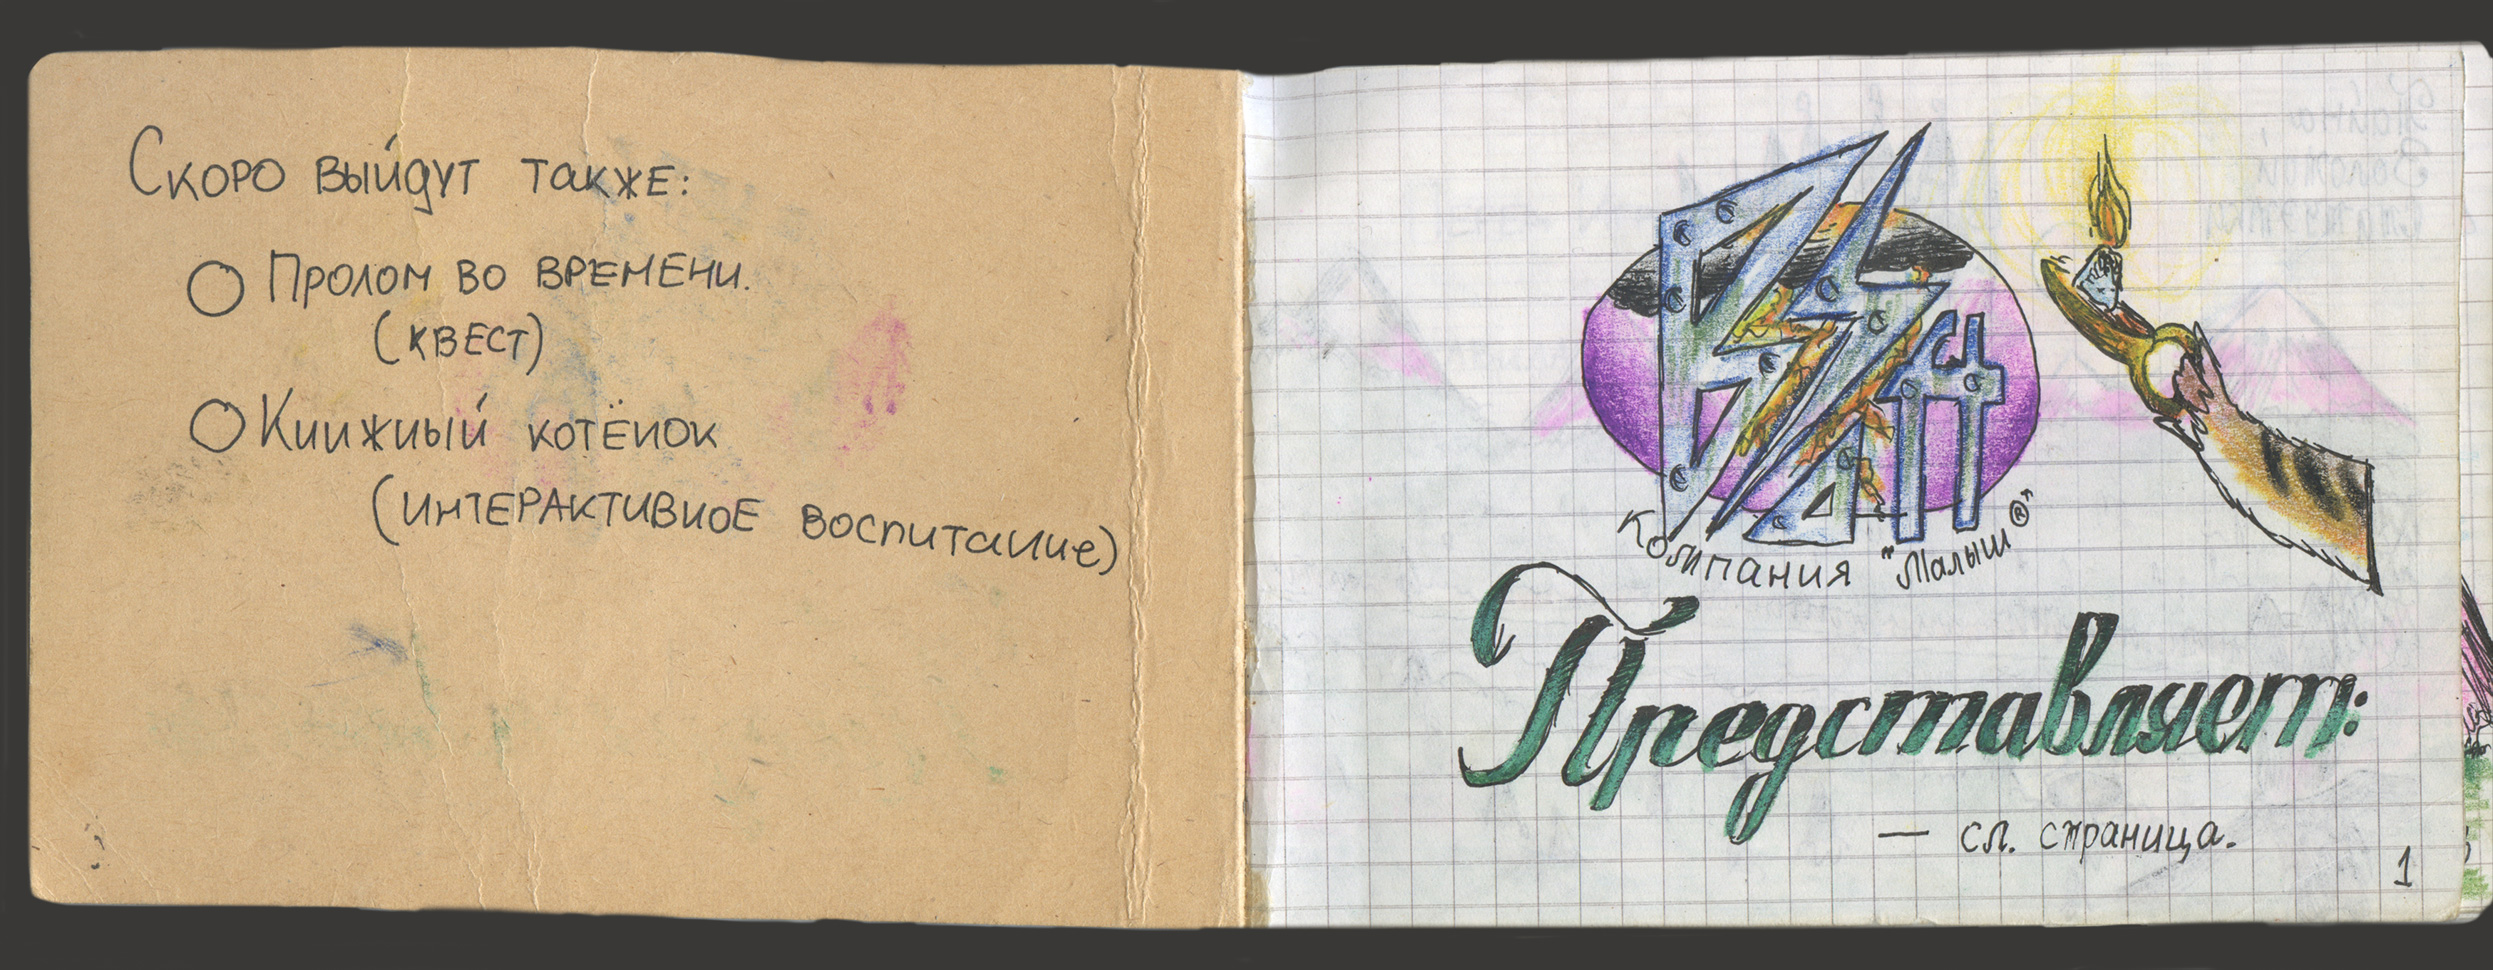 Скоро выйдут также:
Пролом во времени.
(квест)
Книжный котёнок
(интерактивное воспитание)
Компания "Малыш®"
Представляет:
— сл. страница.
1